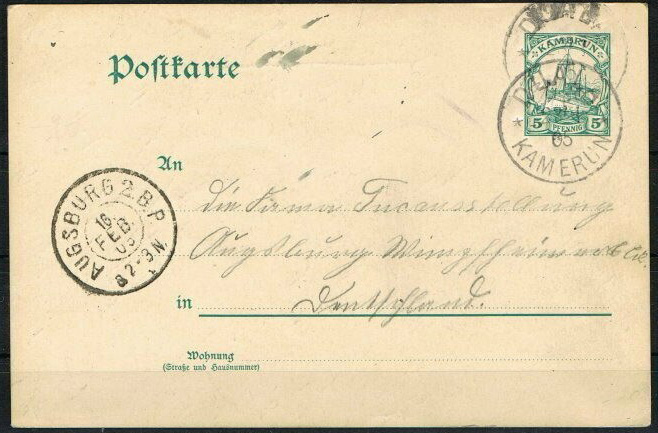 KAMERUN
5 PFENNIG 5
DUALA
*
05
KAMERUN
Postkarte
An
Die Firma
Augsburg
in
Deutschland.
Wohnung
(Straße und Hausnummer)
AUGSBURG 2. B.P.
16
FEB
2-3.N.